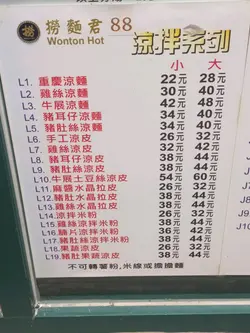 撈麵君 88
Wonton Hot
涼拌系列
小 大
L1. 重慶涼麵 22元 28元
L2. 雞絲涼麵 30元 40元
L3. 牛展涼麵 42元 48元
L4. 豬耳仔涼麵 34元 40元
L5. 豬肚絲涼麵 34元 40元
L6. 手工涼皮 26元 32元
L7. 雞絲涼皮 32元 38元
L8. 豬耳仔涼皮 38元 44元
L9. 豬肚絲涼皮 38元 44元
L10. 牛展土豆絲涼皮 54元 60元
L11. 麻醬水晶拉皮 26元 32元
L12. 豬肚水晶拉皮 38元 44元
L13. 雞絲水晶拉皮 38元 44元
L14. 涼拌米粉 26元 32元
L15. 雞絲涼拌米粉 38元 44元
L16. 腩片涼拌米粉 38元 44元
L17. 豬肚絲涼拌米粉 38元 44元
L18. 果蔬涼皮 26元 32元
L19. 豬肚果蔬涼皮 38元 44元
不可轉薯粉,米線或擔擔麵
J10